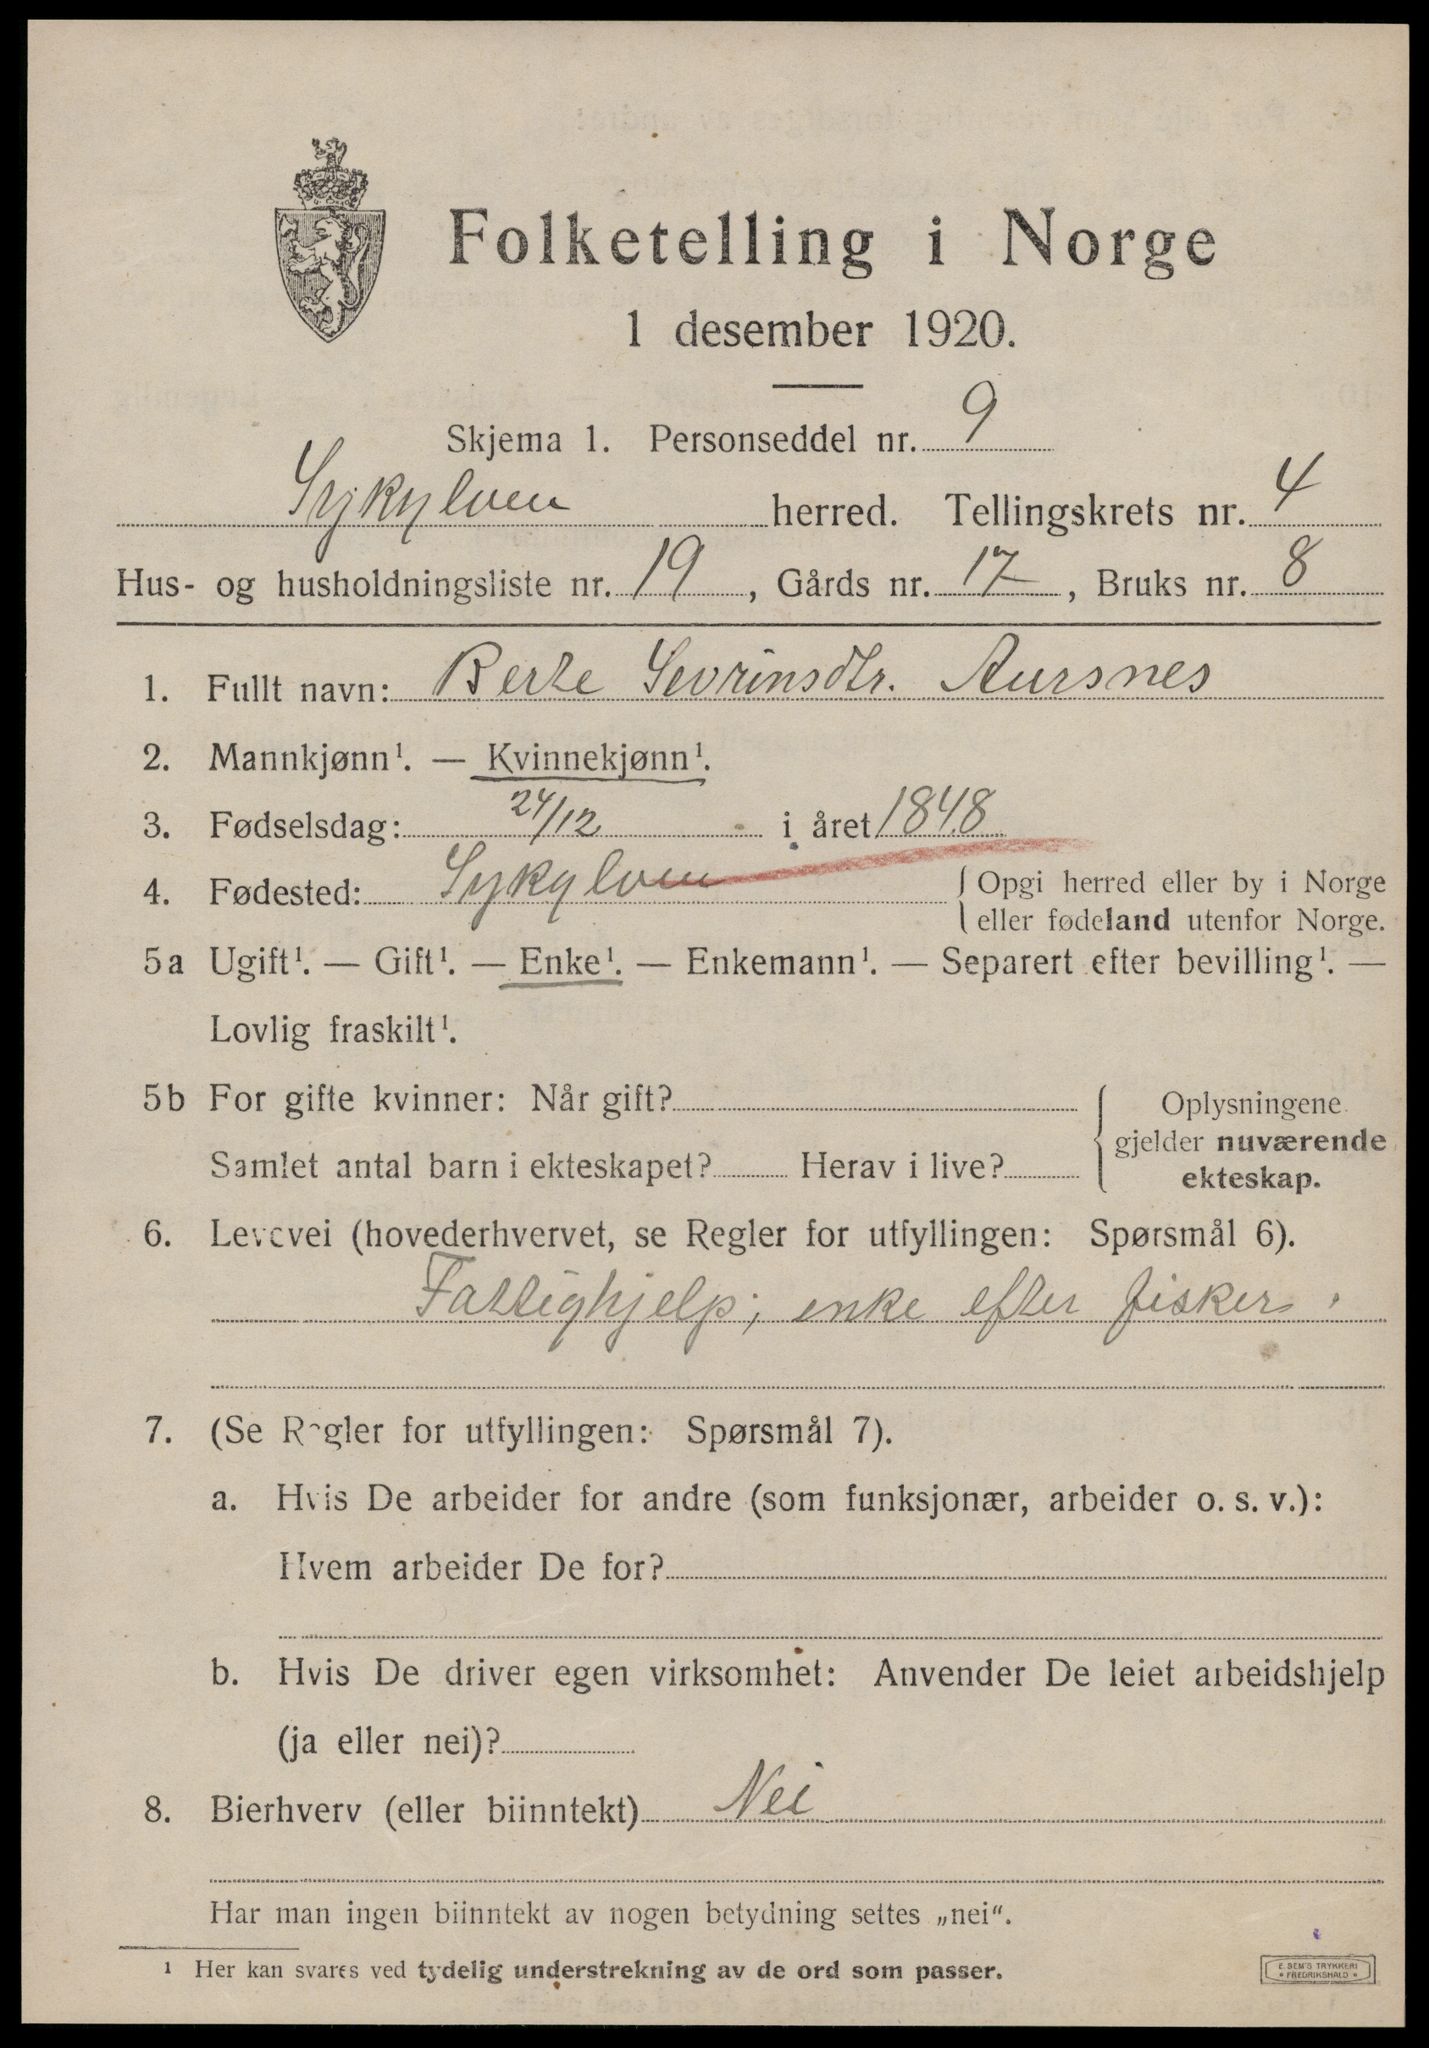 Folketelling i Norge
1 desember 1920.
Skjema 1. Personseddel nr. 9
Sykylven herred. Tellingskrets nr. 4
Hus- og husholdningsliste nr. 19, Gårds nr. 17, Bruks nr. 8
1. Fullt navn: Berte Sevrinsdtr. Aursnes
2. Mannkjønn¹. — Kvinnekjønn¹.
3. Fødselsdag: 24/12 i året 1848
4. Fødested: Sykylven { Opgi herred eller by i Norge
eller fødeland utenfor Norge.
5a Ugift¹. — Gift¹. — Enke¹. — Enkemann¹. — Separert efter bevilling¹. —
Lovlig fraskilt¹.
5b For gifte kvinner: Når gift? { Oplysningene
gjelder nuværende
Samlet antal barn i ekteskapet? Herav i live? ekteskap.
6. Levevei (hovederhvervet, se Regler for utfyllingen: Spørsmål 6).
Fattighjelp; enke efter fisker.
7. (Se Regler for utfyllingen: Spørsmål 7).
a. Hvis De arbeider for andre (som funksjonær, arbeider o. s. v.):
Hvem arbeider De for?
b. Hvis De driver egen virksomhet: Anvender De leiet arbeidshjelp
(ja eller nei)?
8. Bierhverv (eller biinntekt) Nei
Har man ingen biinntekt av nogen betydning settes „nei“.
¹ Her kan svares ved tydelig understrekning av de ord som passer.
E. SEM'S TRYKKERI
FREDRIKSHALD